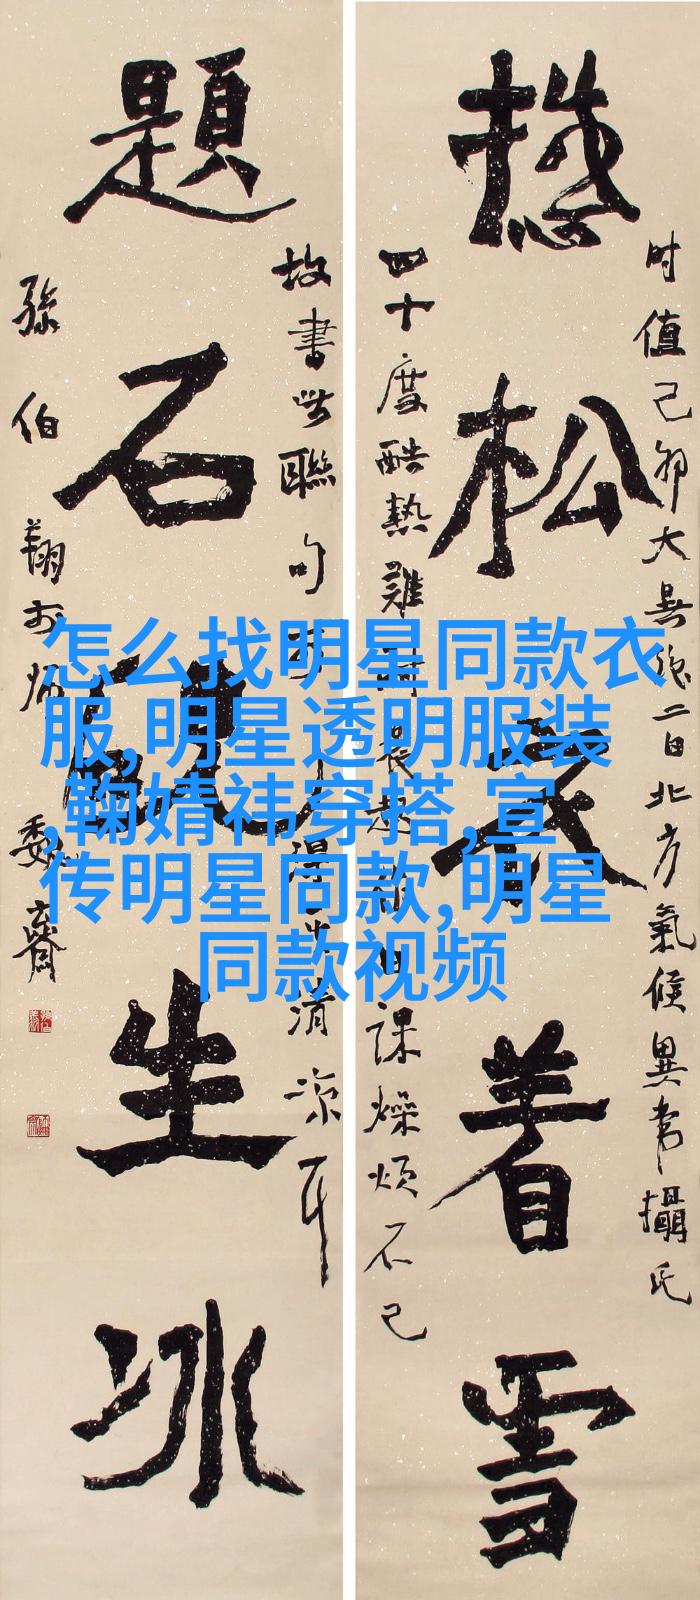 怎么找明星同款衣
服,明星透明服装
,鞠婧祎穿搭,宣
传明星同款,明星
同款视频
时值己卯大暑後二日北方氣候異常攝氏
松衣着雪
四十度酷熱難 晨起 日課燥烦不已
故書此聯句 得 清凉耳
題石砚生冰
孫伯翔 齋